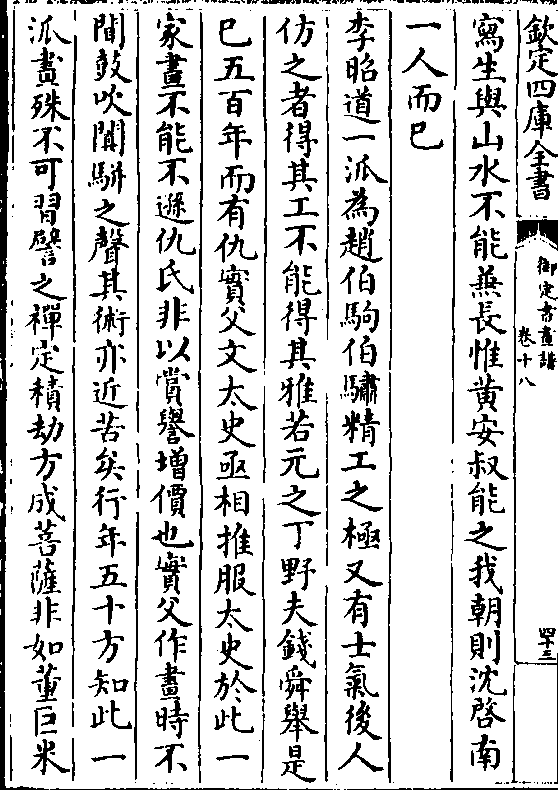 欽定四庫全書
御定書畫譜
卷十八
四十三
寫生與山水不能兼長惟黃安叔能之我朝則沈啓南
一人而已
李昭道一派為趙伯駒伯驌精工之極又有士氣後人
仿之者得其工不能得其雅若元之丁野夫錢舜舉是
已五百年而有仇實父文太史亟相推服太史於此一
家畫不能不遜仇氏非以賞譽增價也實父作畫時不
聞鼓吹闐駢之聲其術亦近苦矣行年五十方知此一
派畫殊不可習譬之禪定積劫方成菩薩非如董巨米